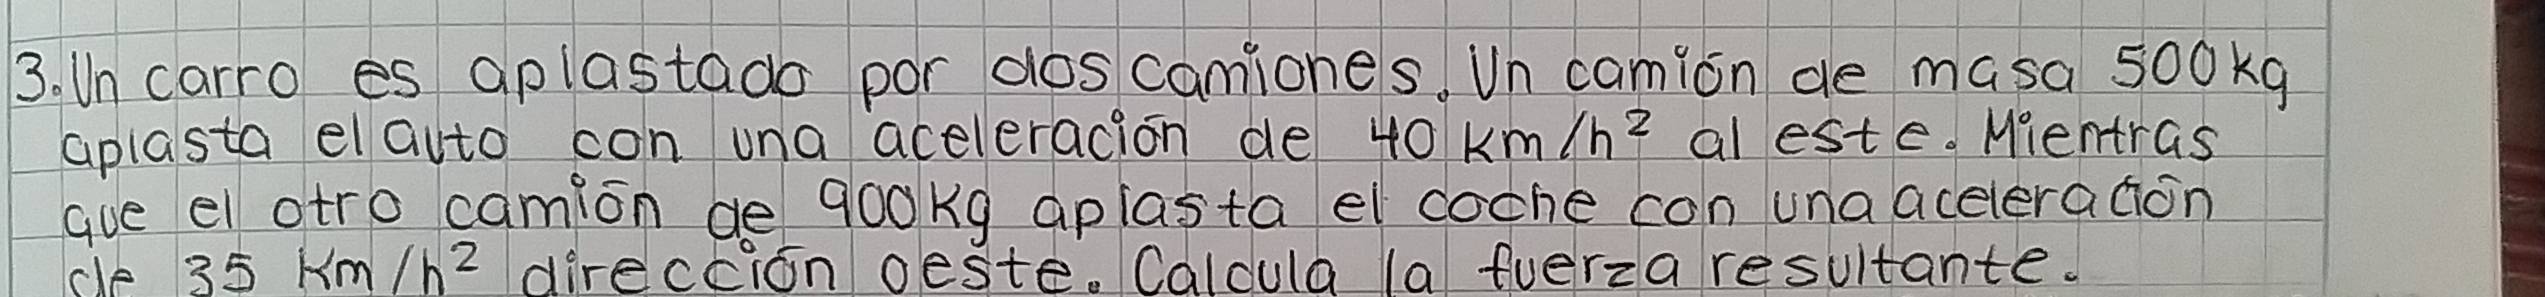 3. Un carro es aplastado por dos camiones. Un camión de masa 500kg
aplasta el auto con una aceleración de 40 km/h² al este. Mientras
que el otro camión de 900kg aplasta el coche con una aceleración
de 35 Km/h² dirección oeste. Calcula la fuerza resultante.